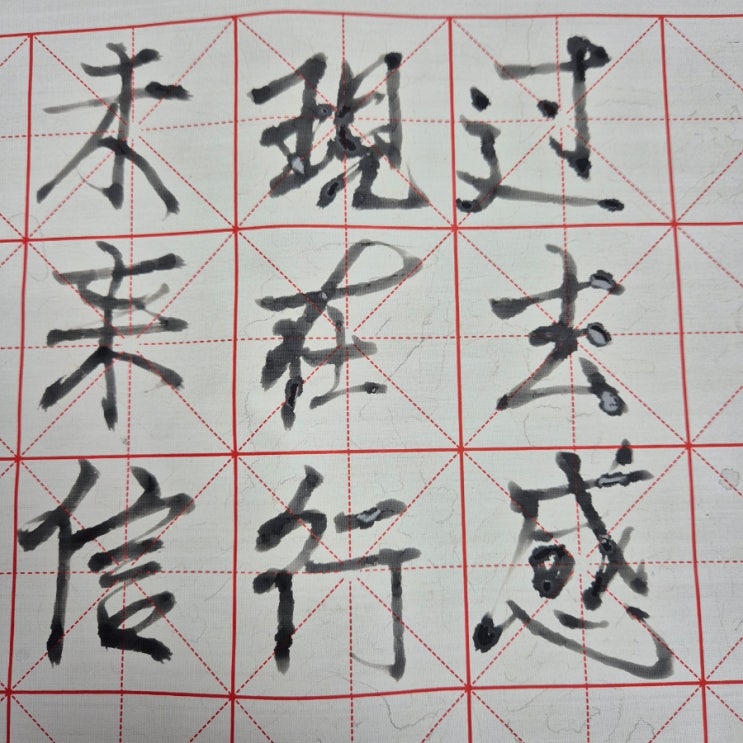 过去感
現在行
未来信